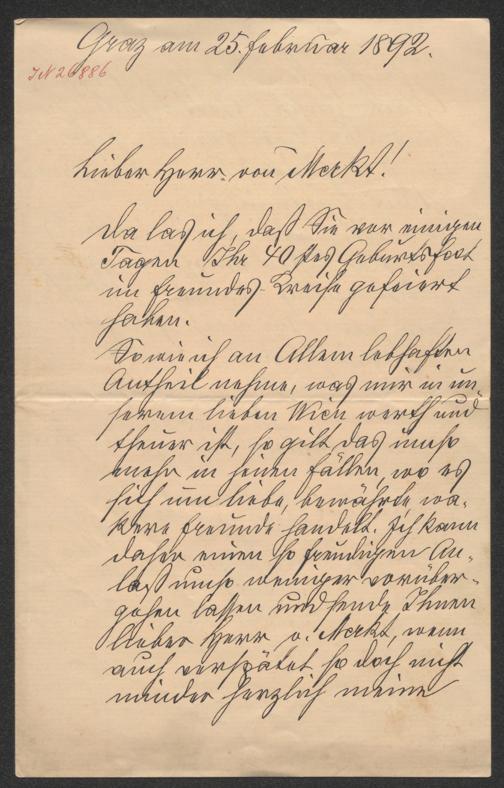 Graz am 25. Februar 1892.
IN 26886
Lieber Herr von Markt!
Da las ich, daß Sie vor einigen
Tagen Ihr 40stes Geburtsfest
im Freundes-Kreise gefeiert
haben.
So wie ich an Allem lebhaften
Antheil nehme, was mir in un-
serem lieben Wien werth und
theuer ist, so gilt das umso
mehr in jenen Fällen, wo es
sich um liebe, bewährte wa-
kere Freunde handelt. Ich kann
daher einen so freudigen An-
laß umso weniger vorüber-
gehen lassen und sende Ihnen
lieber Herr v. Markt, wenn
auch verspätet so doch nicht
minder herzlich meine